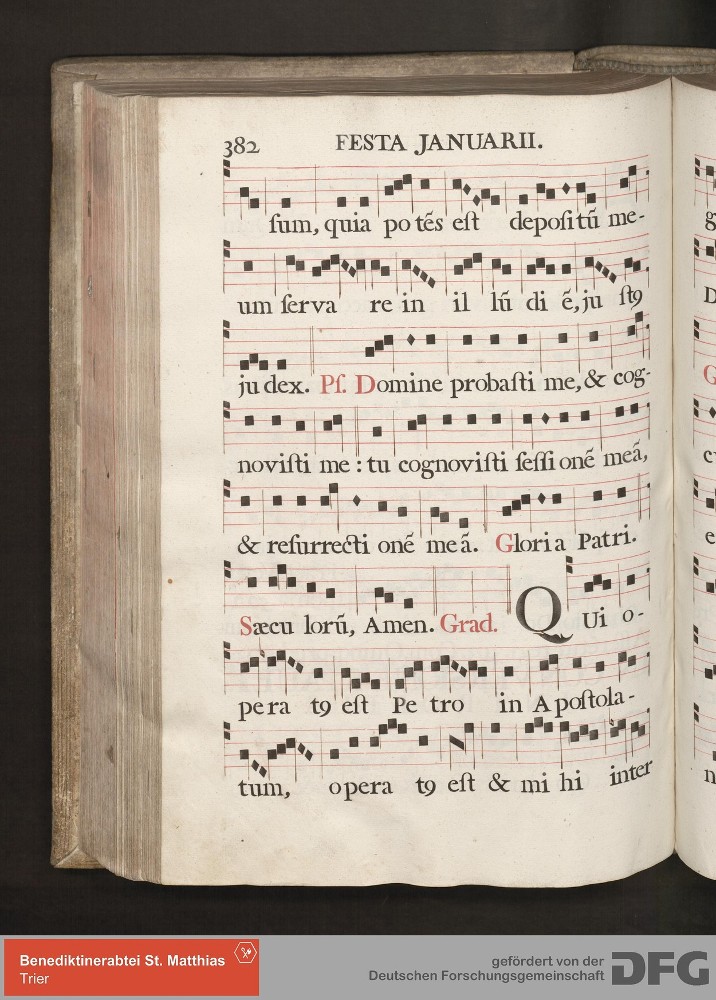 382 FESTA JANUARII.
ſum, quia po tẽs eſt depoſi tũ me-
um ſerva re in il lũ di ẽ, ju ſtꝯ
ju dex. Pſ. Domine probaſti me, & cog-
noviſti me : tu cognoviſti ſeſſi onẽ meã,
& reſurrecti onẽ me ã. Glori a Patri.
Sæcu lorũ, Amen. Grad. QUi o-
pe ra tꝯ eſt Pe tro in A poſtola-
tum, opera tꝯ eſt & mi hi inter
g
D
G
c
e
n
Benediktinerabtei St. Matthias
Trier
gefördert von der
Deutschen Forschungsgemeinschaft DFG